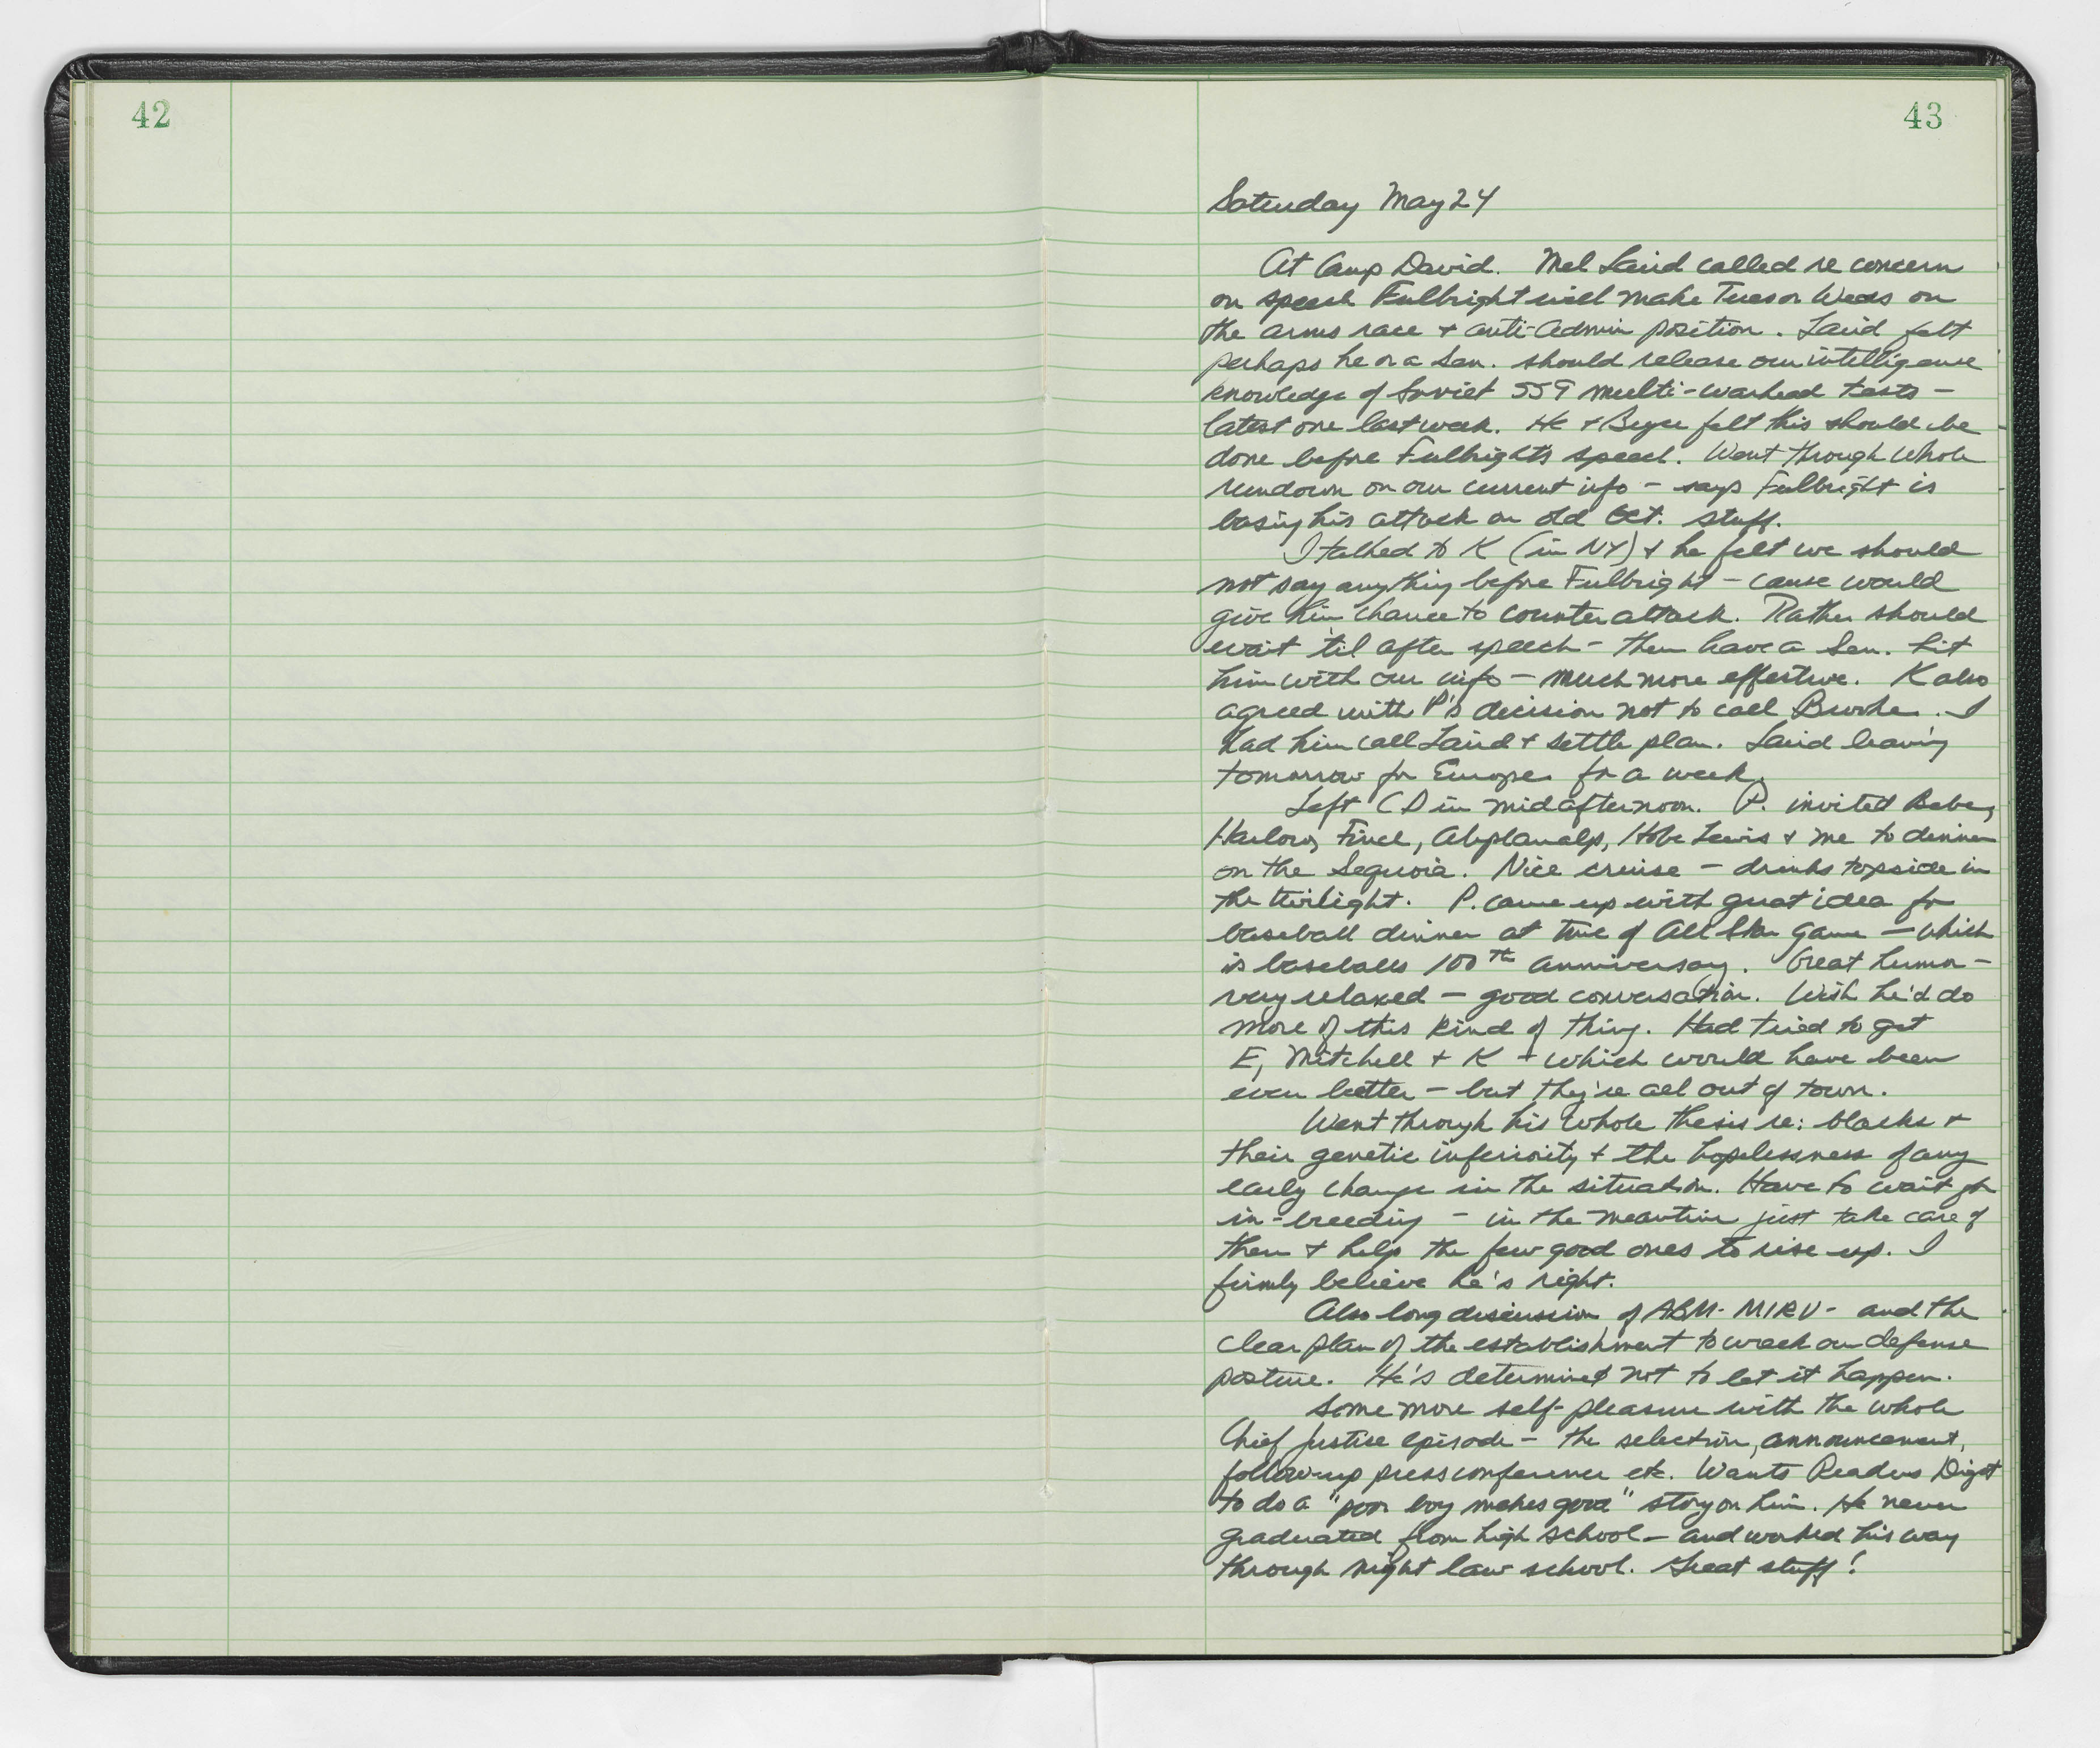 42
43
Saturday May 24
At Camp David. Mel Laird called re concern
on speech Fulbright will make Tues or Weds on
the arms race + anti-Admin position. Laird felt
perhaps he or a Sen. should release our intelligence
knowledge of Soviet SS9 multi-warhead tests -
latest one last week. He + Bryce felt this should be
done before Fulbright's speech. Went through whole
rundown on our current info - says Fulbright is
basing his attack on old Oct. stuff.
I talked to K (in NY) + he felt we should
not say anything before Fulbright - cause would
give him chance to counter attack. Rather should
wait 'til after speech - then have a Sen. hit
him with our info - much more effective. K also
agreed with P's decision not to call Brooke. I
had him call Laird + settle plan. Laird leaving
tomorrow for Europe for a week.
Left CD in midafternoon. P. invited Bebe,
Harlow, Finch, Abplanalp, Hobe Lewis + me to dinner
on the Sequoia. Nice cruise - drinks topside in
the twilight. P. came up with great idea for
baseball dinner at time of All Star Game - which
is baseballs 100th anniversary. Great humor -
very relaxed - good conversation. Wish he'd do
more of this kind of thing. Had tried to get
E, Mitchell + K - which would have been
even better - but they're all out of town.
Went through his whole thesis re: blacks +
their genetic inferiority + the hopelessness of any
early change in the situation. Have to wait for
in-breeding - in the meantime just take care of
them + help the few good ones to rise up. I
firmly believe he's right.
Also long discussion of ABM - MIRV - and the
clear plan of the establishment to wreck our defense
posture. He's determined not to let it happen.
Some more self-pleasure with the whole
Chief Justice episode - the selection, announcement,
follow-up press conference etc. Wants Readers Digest
to do a "poor boy makes good" story on him. He never
graduated from high school - and worked his way
through night law school. Great stuff!